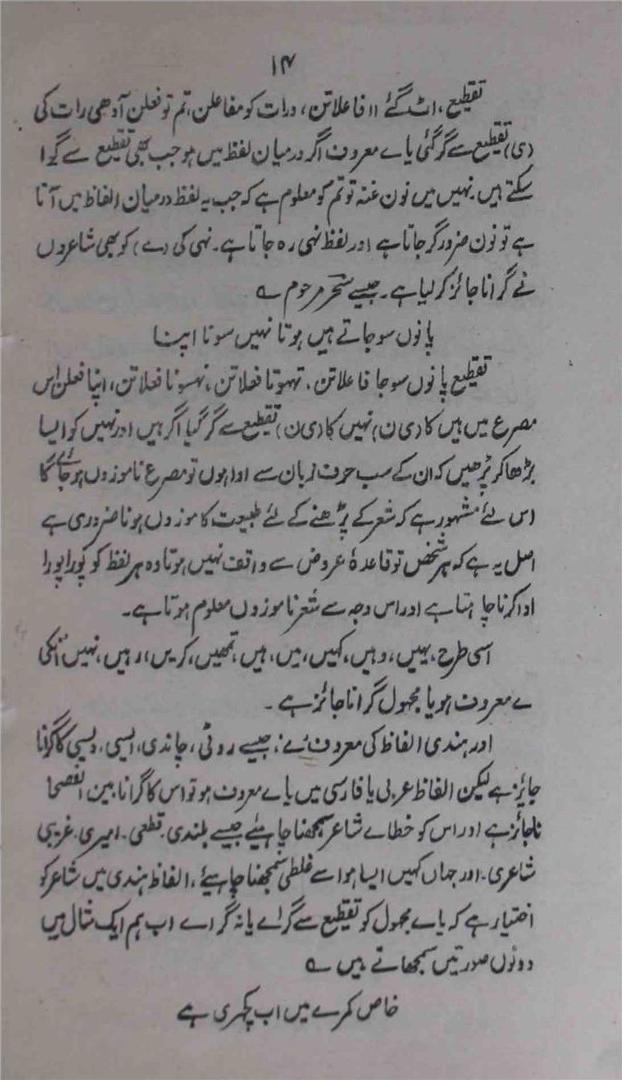 ۱۴
تقطیع، اٹ گئے اا فاعلاتن، درات کو مفاعلن، تم تو فعلن آدھی رات کی
(ی) تقطیع سے گر گئی یاے معروف اگر درمیان لفظ میں ہو جب بھی تقطیع سے گرا
سکتے ہیں۔ نہیں میں نون غنہ تو تم کو معلوم ہے کہ جب یہ لفظ درمیان الفاظ میں آتا
ہے تو نون ضرور گر جاتا ہے اور لفظ نہی رہ جاتا ہے۔ نہی کی (ے) کو بھی شاعروں
نے گرانا جائز کر لیا ہے۔ جیسے سحر مرحوم ے
پانوں سو جاتے ہیں ہوتا نہیں سونا اپنا
تقطیع پانوں سوجا فاعلاتن، تہہوتا فعلاتن، نہسونا فعلاتن، اپنا فعلن اس
مصرع میں ہیں کا (ی ن) نہیں کا (ی ن) تقطیع سے گر گیا اگر ہیں اور نہیں کو ایسا
بڑھا کر پڑھیں کہ ان کے سب حرف زبان سے ادا ہوں تو مصرع ناموزوں ہو جائے گا
اس لئے مشہور ہے کہ شعر کے پڑھنے کے لئے طبیعت کا موزوں ہونا ضروری ہے
اصل یہ ہے کہ ہر شخص تو قاعدۂ عروض سے واقف نہیں ہوتا وہ ہر لفظ کو پورا پورا
ادا کرنا چاہتا ہے اور اس وجہ سے شعر ناموزوں معلوم ہوتا ہے۔
اسی طرح، یہیں، وہیں، کہیں، میں، ہیں، تمھیں، کریں، رہیں، نہیں انکی
ے معروف ہو یا مجہول گرانا جائز ہے۔
اور ہندی الفاظ کی معروف ئے، جیسے روٹی، چاندی، ایسی، ویسی کا گرانا
جایز ہے لیکن الفاظ عربی یا فارسی میں یاے معروف ہو تو اس کا گرانا بین الفصحا
ناجائز ہے اور اس کو خطاے شاعر سمجھنا چاہیئے جیسے بلندی۔ قطعی۔ امیری۔ غریبی
شاعری۔ اور جہاں کہیں ایسا ہو اسے غلطی سمجھنا چاہیئے، الفاظ ہندی میں شاعر کو
اختیار ہے کہ یاے مجہول کو تقطیع سے گراے یا نہ گراے اب ہم ایک مثال میں
دونوں صورتیں سمجھاتے ہیں ے
خاص کمرے میں اب کچہری ہے